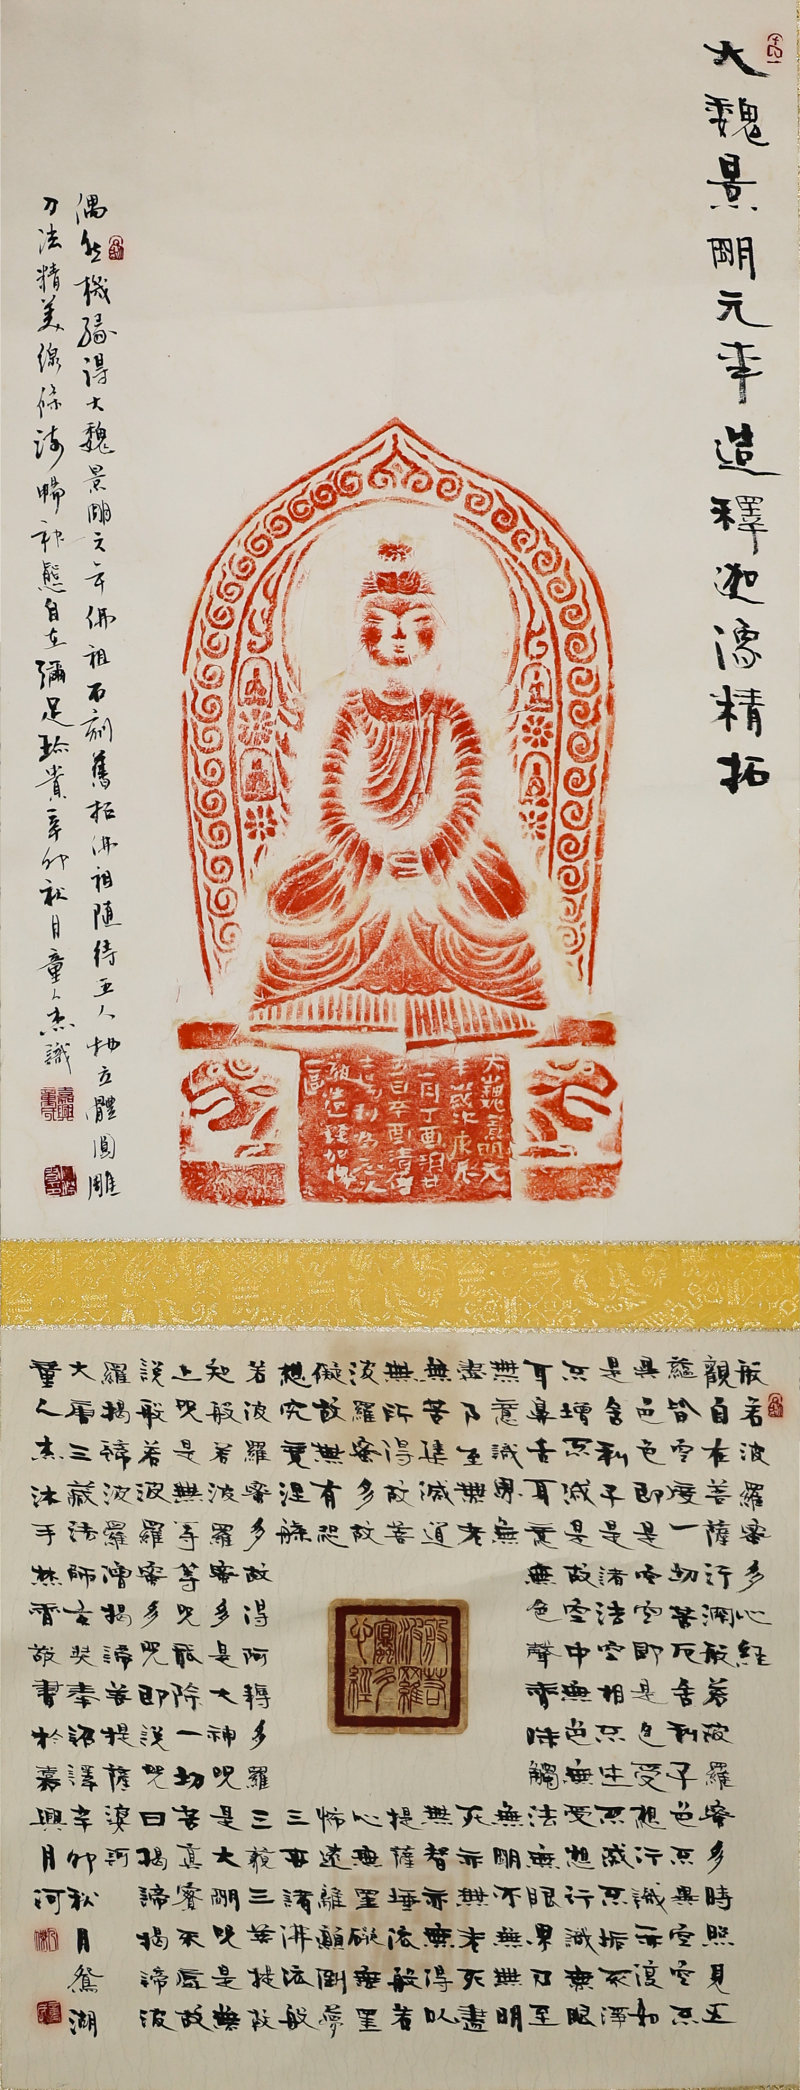 大魏景朙元年造釋迦像精拓
偶然機緣得大魏景朙元年佛祖石刻舊拓佛祖隨待五人物立體圓雕
刀法精美線條流暢神態自在彌足珍貴辛卯秋月童人杰識
大魏景明元
年歲次庚辰
十一月丁酉朔廿
五日辛酉清信
祖造釋加像
一區
般若波羅密多心經
觀自在菩薩行深般若波羅密多時照見五
蘊皆空度一切苦厄舍利子色不異空空不
異色色即是空空即是色受想行識亦復如
是舍利子是諸法空相不生不滅不垢不淨
不增不減是故空中無色無受想行識無眼
耳鼻舌耳意無色聲香味觸法無眼界乃至
無意識界無無明亦無無明
盡乃至無老死亦無老死盡
無苦集滅道無智亦無得以
無所得故菩提薩埵依般若
波羅密多故心無罣礙無罣
礙故無有恐怖遠離顛倒夢
想究竟涅槃三世諸佛依般
若波羅密多故得阿耨多羅三藐三菩提故
知般若波羅密多是大神咒是大朙咒是無
上咒是無等等咒能除一切苦真實不虛故
說般若波羅密多咒即說咒曰揭諦揭諦波
羅揭諦波羅僧揭諦菩提薩婆訶
大唐三藏法師玄奘奉詔譯辛卯秋月鴛湖
童人杰沐手焚香敬書於嘉興月河
般若波羅蜜多心經